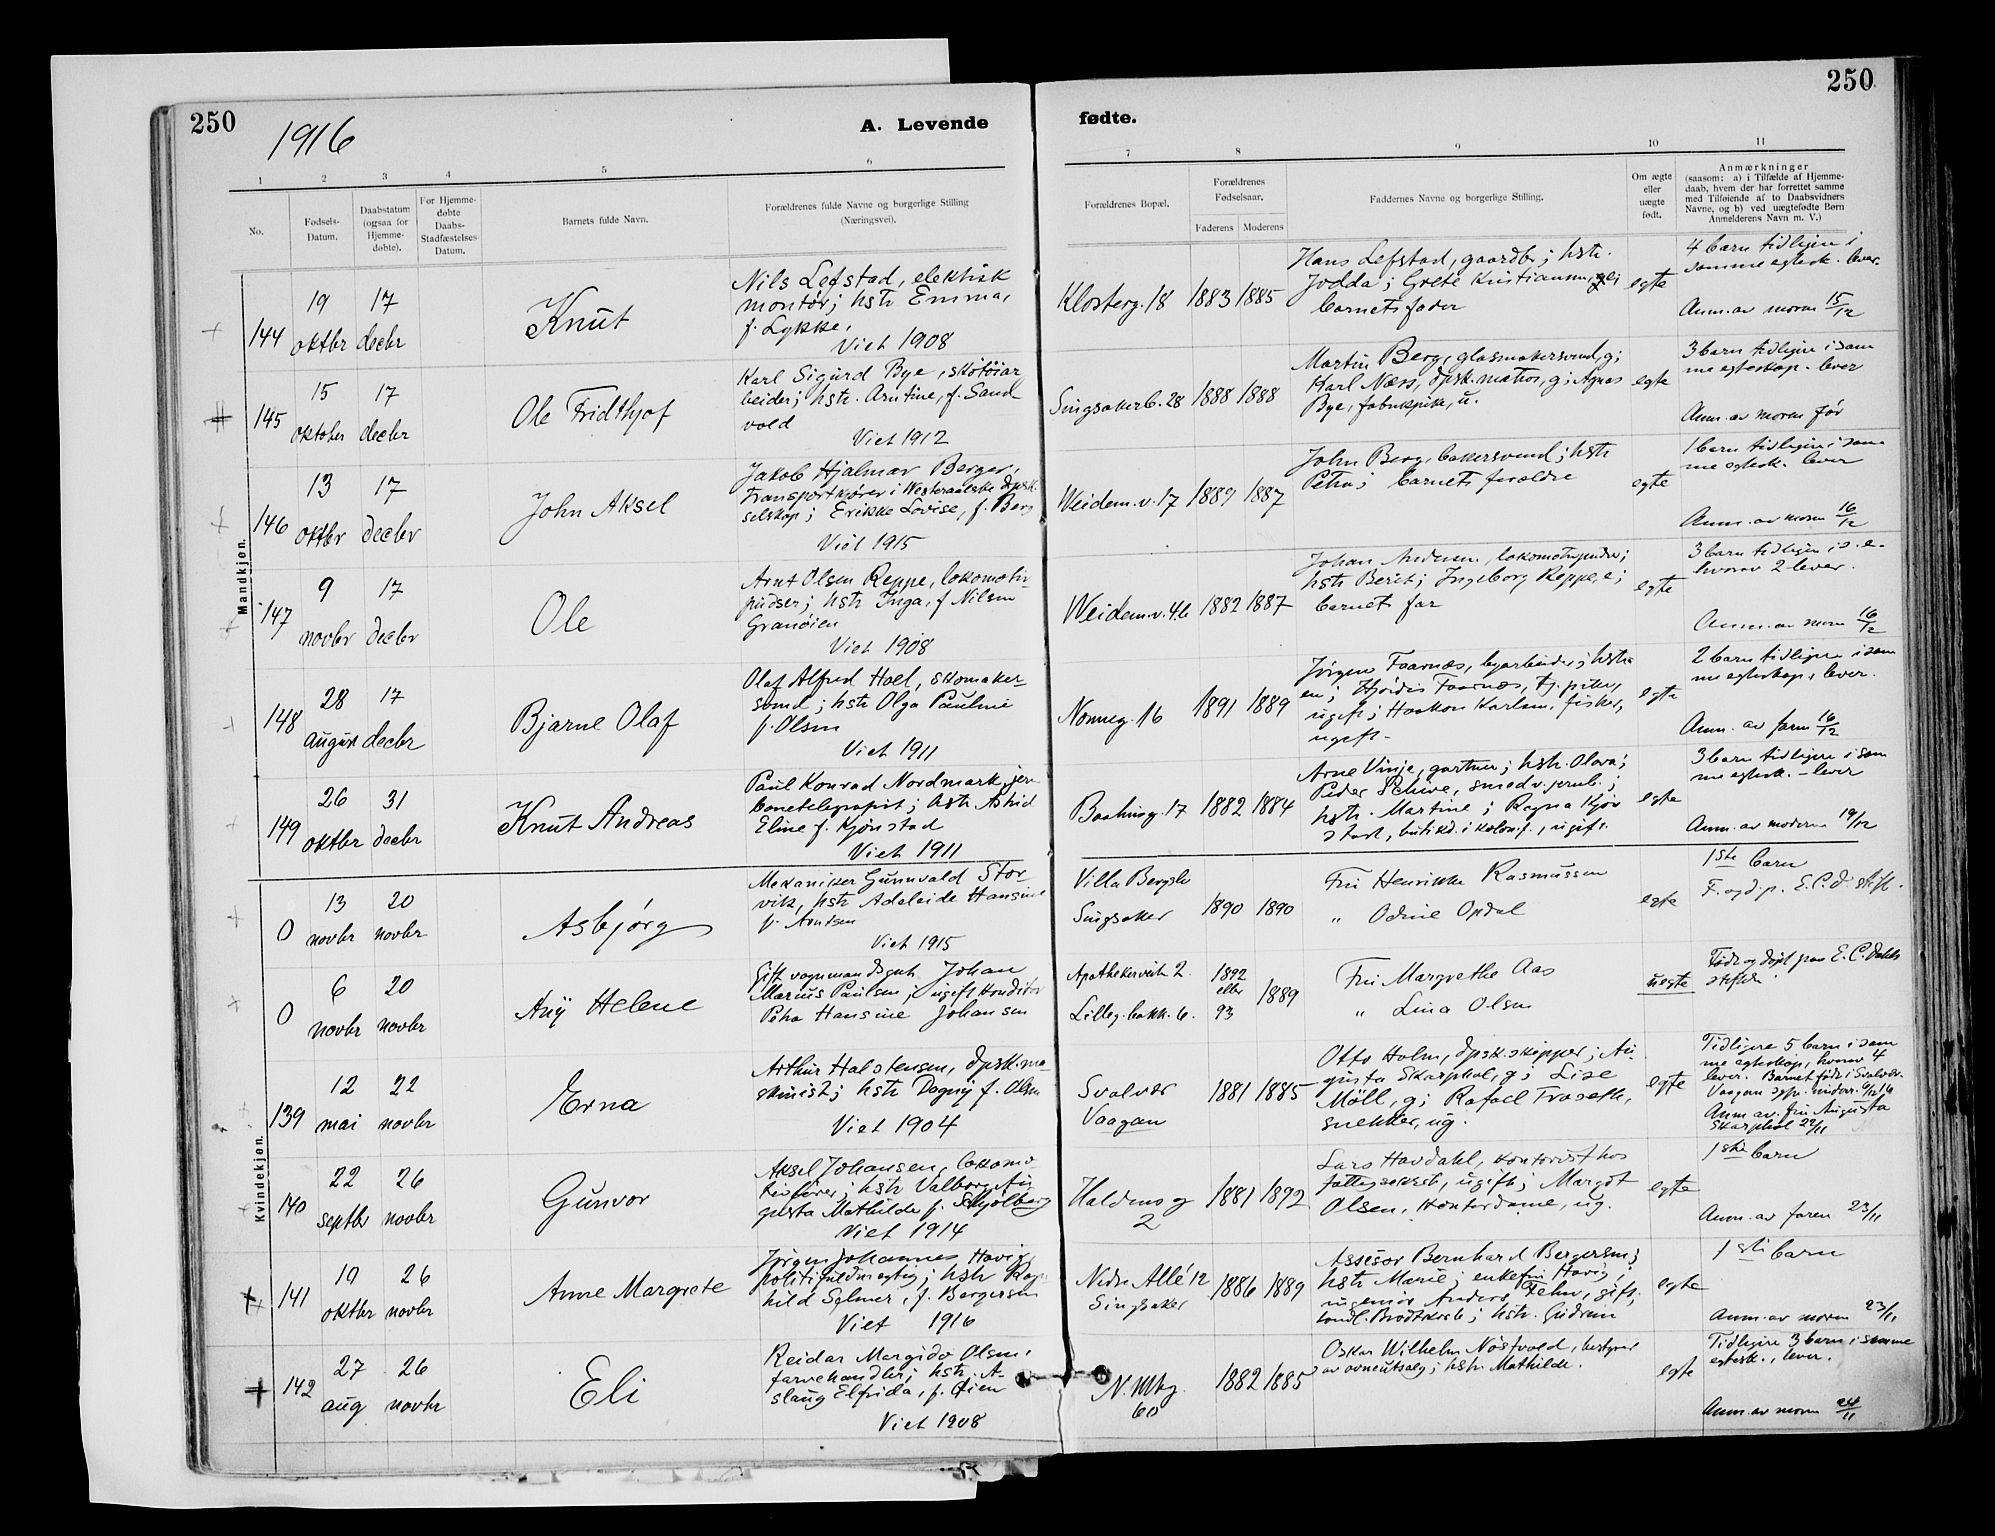 250
1916
A. Levende
fødte.
250
1 2 3 4 5 6 7 8 9 10 11
No.
Fødsels-
Datum.
Daabsdatum
(ogsaa for
Hjemme-
døbte).
For Hjemme-
døbte
Daabs-
Stadfæstelses-
Datum.
Barnets fulde Navn.
Forældrenes fulde Navne og borgerlige Stilling
(Næringsvei).
Forældrenes Bopæl.
Forældrenes
Fødselsaar.
Faderens Moderens
Faddernes Navne og borgerlige Stilling.
Om ægte
eller
uægte
født.
Anmærkninger
(saasom: a) i Tilfælde af Hjemme-
daab, hvem der har forrettet samme
med Tilføiende af to Daabsvidners
Navne, og b) ved uægtefødte Børn
Anmelderens Navn m. V.)
Mandkjøn.
144
19
oktbr
17
decbr
Knut
Nils Lefstad, elektrisk
montør; hstr Emma,
f. Lykke,
Viet 1908
Klosterg. 18
1883
1885
Hans Lefstad, gaardbr; hstr.
Jodda; Grete Kristiansen,
barnets fader
egte
4 barn tidligere i
samme egtesk. lever.
Anm. av moren 15/12
145
15
oktober
17
decbr
Ole Fridthjof
Karl Sigurd Bye, skotøiar
beider; hstr. Arntine, f. Sand
vold
Viet 1912
Singsakerb. 28
1888
1888
Martin Berg, glasmakersvend, g;
Karl Næss, dpsk. matros, g; Agnes
Bye, fabrikpike, u.
egte
3 barn tidligere i sam
me egteskap. lever
Anm. av moren før
146
13
oktbr
17
decbr
John Aksel
Jakob Hjalmar Berger,
Transportkjører i Westeraalske dpsk.
selskap; Erikke Lovise, f. Berg
Viet 1915
Weidem.v. 17
1889
1887
John Berg, bakersvend; hstr
Petra; barnets forældre
egte
1 barn tidligere i sam
me egtesk. lever
Anm. av moren 16/12
147
9
novbr
17
decbr
Ole
Arnt Olsen Reppe, lokomotiv
pudser; hstr Inga, f. Nilsen
Granøien
Viet 1908
Weidem.v. 46
1882
1887
Johan Andersen, lokomotivpudser;
hstr Berit; Ingeborg Reppe, e;
barnets far
egte
3 barn tidligere i s. e.
hvorav 2 lever.
Anm. av moren 16/12
148
28
august
17
decbr
Bjarne Olaf
Olaf Alfred Hoel, skomaker-
svend; hstr Olga Pauline
f. Olsen
Viet 1911
Nonneg. 16
1891
1889
Jørgen Faarnæs, byarbeider; hstr-
en; Hjørdis Faarnæs, tj.pike,
ugift; Haakon Karlsen, fisker,
ugift.
egte
2 barn tidligere i sam
me egteskap, lever.
Anm. av faren 16/12
149
26
oktbr
31
decbr
Knut Andreas
Paul Konrad Nordmark, jern
banetelegrafist; hstr Astrid
Eline f. Kjønstad
Viet 1911
Baahusg. 17
1882
1884
Arne Vinje, gartner; hstr. Olava;
Peder Schive, smed v. jernb.;
hstr. Martine; Ragna Kjøn
stad, butikd. i kolon.f., ugift.
egte
3 barn tidligere i sam
me egtesk. - lever
Anm. av moderen 19/12
Kvindekjøn.
0
13
novbr
20
novbr
Asbjørg
Mekaniker Gunnvald Stor
vik, hstr Adeleide Hansine
f. Arntsen
Viet 1915
Villa Bergslo
Singsaker
1890
1890
Fru Henrikke Rasmussen
" Odine Opdal
egte
1ste barn
F. og d. p. E. C. D. stift.
0
6
novbr
20
novbr
Any Helene
Gift vognmandsgut Johan
Marius Paulsen; ugift Konditor
Petra Hansine Johansen
Apothekerveita 2.
Lilleg. bakk. 6.
1892
eller
93
1889
Fru Margrethe Aas
" Lina Olsen
uegte
Født og døpt paa E. C. Dahls
stiftelse.
139
12
mai
22
novbr
Erna
Arthur Halstensen, dpsk.ma
skinist; hstr Dagny f. Olsen
Viet 1904
Svolvær
Vaagan
1881
1885
Otto Holm, dpsk.skipper; Au
gusta Skarphol, g; Lise
Möll, g; Rafael Fraseth,
snekker, ug.
egte
Tidligere 5 barn i sam
me egteskap, hvorav 4
lever. Barnet født i Svolvær.
Vaagan spr. underr. 6/12 16
Anm av. fru Augusta
Skarphol 22/11
140
22
septbr
26
novbr
Gunvor
Aksel Johansen, lokomo
tivfører; hstr Valborg Au
gusta Mathilde f. Skjølberg
Viet 1914
Haldens g
2
1881
1892
Lars Havdahl, kontorist hos
fattigvæsenet, ugift; Margot
Olsen, Kontordame, ug.
egte
1ste barn
Anm. av faren 23/11
141
19
oktbr
26
novbr
Anne Margrete
Jørgen Johannes Havig,
politifuldmægtig; hstr Ragn
hild Selmer, f. Bergersen
Viet 1916
Nedre Allé 12
Singsaker
1886
1889
Assesor Bernhard Bergersen;
hstr Marie; enkefru Havig;
ingeniør Anders Fehn, gift;
kand. Brodtkorb; hstr. Gudrun
egte
1ste barn
Anm. av moren 23/11
142
27
aug
26
novbr
Eli
Reidar Margido Olsen,
farvehandler; hstr. A-
slaug Elfrida, f. Øien
Viet 1908
N. Mbg.
60
1882
1885
Oskar Wilhelm Nøstvold, bestyrer
av ovneutsalg; hstr Mathilde.
egte
Tidligere 3 barn i samme
egtesk., lever.
Anm. av moren 24/11